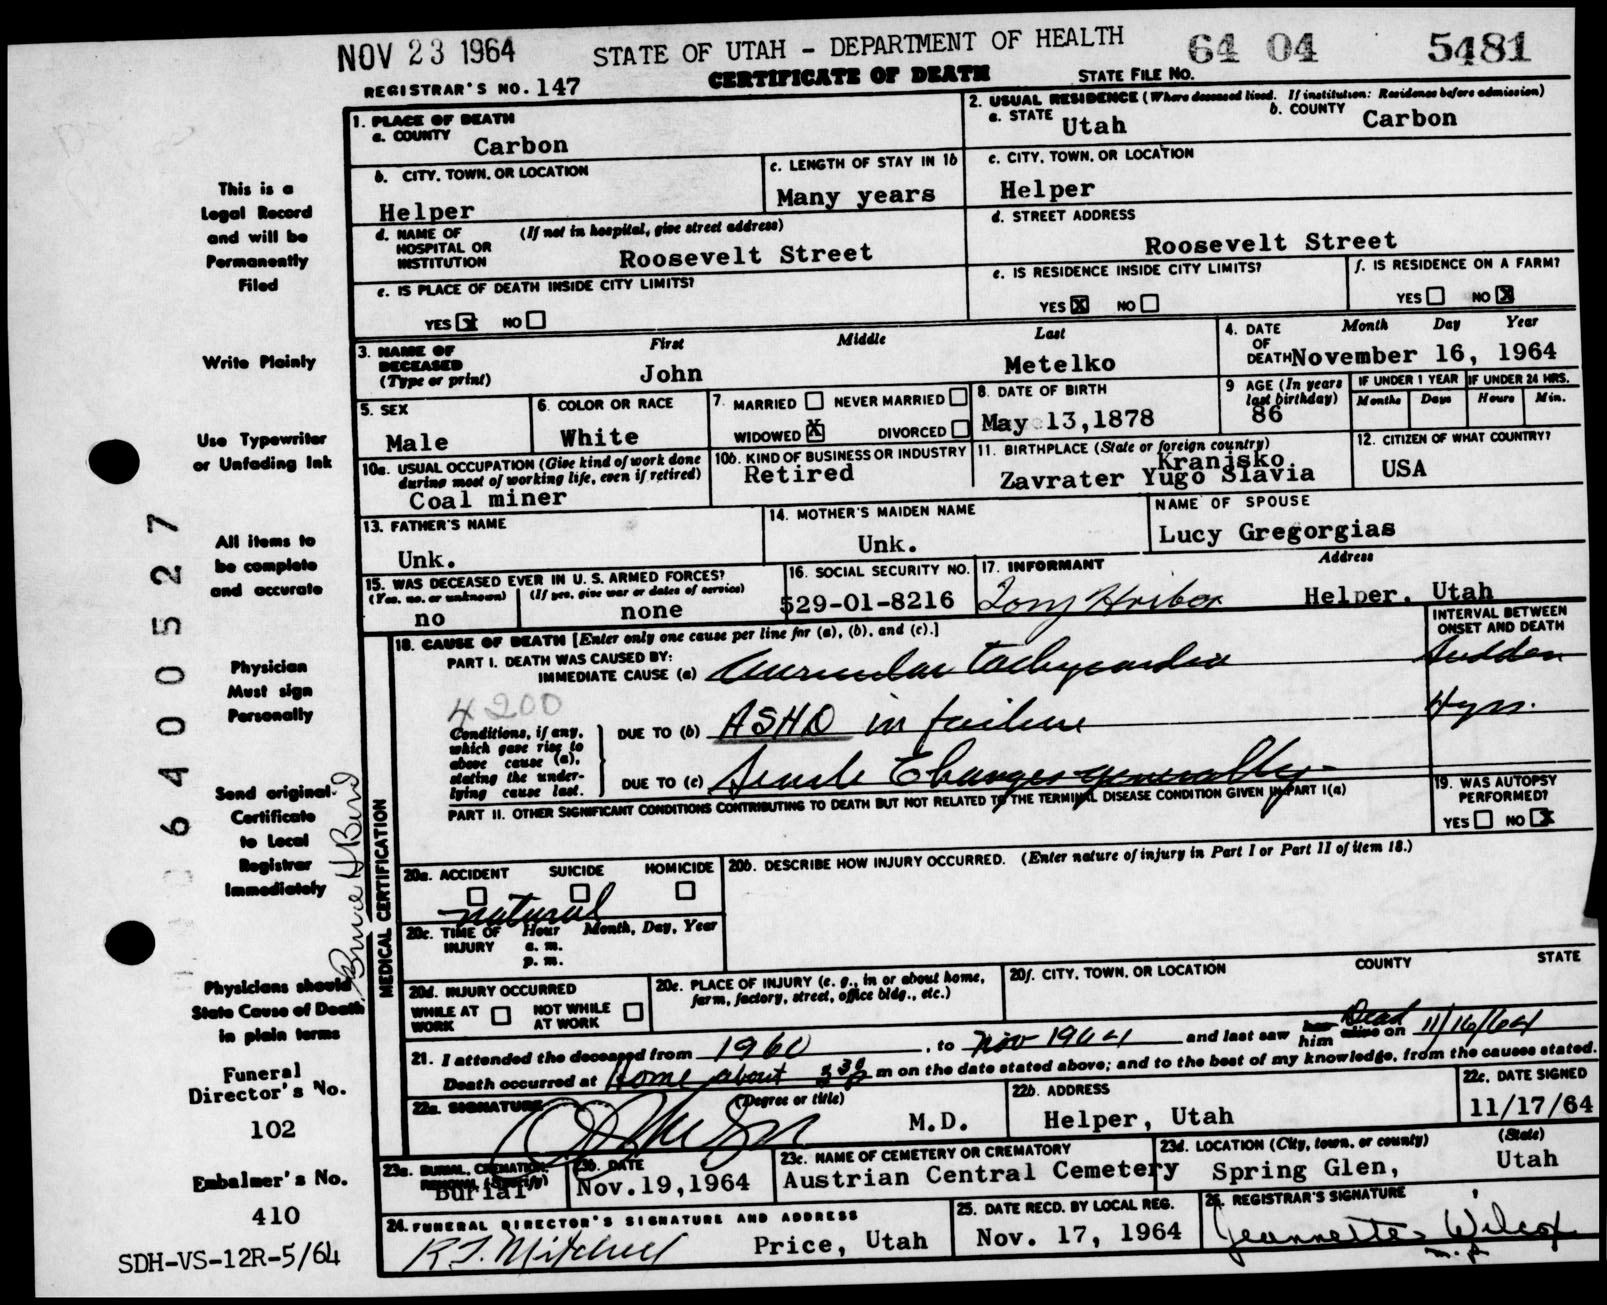 NOV 23 1964 STATE OF UTAH - DEPARTMENT OF HEALTH 64 04 5481
REGISTRAR'S NO. 147 CERTIFICATE OF DEATH STATE FILE NO.
1. PLACE OF DEATH
a. COUNTY Carbon
2. USUAL RESIDENCE (Where deceased lived. If institution: Residence before admission)
a. STATE Utah b. COUNTY Carbon
b. CITY, TOWN, OR LOCATION Helper
c. LENGTH OF STAY IN 1b Many years
c. CITY, TOWN, OR LOCATION Helper
d. NAME OF HOSPITAL OR INSTITUTION (If not in hospital, give street address) Roosevelt Street
d. STREET ADDRESS Roosevelt Street
e. IS PLACE OF DEATH INSIDE CITY LIMITS?
YES X NO
e. IS RESIDENCE INSIDE CITY LIMITS?
YES X NO
f. IS RESIDENCE ON A FARM?
YES NO X
3. NAME OF DECEASED (Type or print) First Middle Last
John Metelko
4. DATE OF DEATH Month Day Year
November 16, 1964
5. SEX Male
6. COLOR OR RACE White
7. MARRIED NEVER MARRIED
WIDOWED X DIVORCED
8. DATE OF BIRTH May 13,1878
9 AGE (In years last birthday) 86
IF UNDER 1 YEAR Months Days
IF UNDER 24 HRS. Hours Min.
10a. USUAL OCCUPATION (Give kind of work done during most of working life, even if retired) Coal miner
10b. KIND OF BUSINESS OR INDUSTRY Retired
11. BIRTHPLACE (State or foreign country)
Kranjsko
Zavrater Yugo Slavia
12. CITIZEN OF WHAT COUNTRY? USA
13. FATHER'S NAME Unk.
14. MOTHER'S MAIDEN NAME Unk.
NAME OF SPOUSE Lucy Gregorgias
15. WAS DECEASED EVER IN U. S. ARMED FORCES?
(Yes, no, or unknown) (If yes, give war or dates of service)
no none
16. SOCIAL SECURITY NO. 529-01-8216
17. INFORMANT Address
Tony Helper, Utah
18. CAUSE OF DEATH [Enter only one cause per line for (a), (b), and (c).]
INTERVAL BETWEEN ONSET AND DEATH
PART I. DEATH WAS CAUSED BY:
IMMEDIATE CAUSE (a) Auricular tachycardia Sudden
4200
Conditions, if any, which gave rise to above cause (a), stating the underlying cause last.
DUE TO (b) ASHD in failure 4 yrs.
DUE TO (c) Senile Changes generally
PART II. OTHER SIGNIFICANT CONDITIONS CONTRIBUTING TO DEATH BUT NOT RELATED TO THE TERMINAL DISEASE CONDITION GIVEN IN PART I(a)
19. WAS AUTOPSY PERFORMED?
YES NO X
MEDICAL CERTIFICATION
20a. ACCIDENT SUICIDE HOMICIDE
natural
20b. DESCRIBE HOW INJURY OCCURRED. (Enter nature of injury in Part I or Part II of item 18.)
20c. TIME OF INJURY Hour Month, Day, Year
a. m.
p. m.
20d. INJURY OCCURRED
WHILE AT WORK NOT WHILE AT WORK
20e. PLACE OF INJURY (e. g., in or about home, farm, factory, street, office bldg., etc.)
20f. CITY, TOWN, OR LOCATION COUNTY STATE
21. I attended the deceased from 1960, to Nov 1964 and last saw him Dead on 11/16/64
Death occurred at Home about 3 30 p m on the date stated above; and to the best of my knowledge, from the causes stated.
22a. SIGNATURE (Degree or title) M.D.
22b. ADDRESS Helper, Utah
22c. DATE SIGNED 11/17/64
23a. BURIAL, CREMATION, REMOVAL (Specify) Burial
23b. DATE Nov.19,1964
23c. NAME OF CEMETERY OR CREMATORY Austrian Central Cemetery
23d. LOCATION (City, town, or county) (State)
Spring Glen, Utah
24. FUNERAL DIRECTOR'S SIGNATURE AND ADDRESS
R.J. Mitchell Price, Utah
25. DATE RECD. BY LOCAL REG. Nov. 17, 1964
26. REGISTRAR'S SIGNATURE
Jeannette Wilcox
This is a
Legal Record
and will be
Permanently
Filed
Write Plainly
Use Typewriter
or Unfading Ink
All items to
be complete
and accurate
Physician
Must sign
Personally
Send original
Certificate
to Local
Registrar
Immediately
Physicians should
State Cause of Death
in plain terms
Funeral
Director's No.
102
Embalmer's No.
410
SDH-VS-12R-5/64
06400527